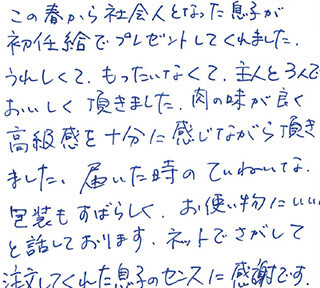 この春から社会人となった息子が
初任給でプレゼントしてくれました.
うれしくて.もったいなくて.主人と3人で
おいしく頂きました.肉の味が良く
高級感を十分に感じながら頂き
ました、届いた時のていねいな.
包装もすばらしく.お使い物にいい
と話しております.ネットでさがして
注文してくれた息子のセンスに感謝です.